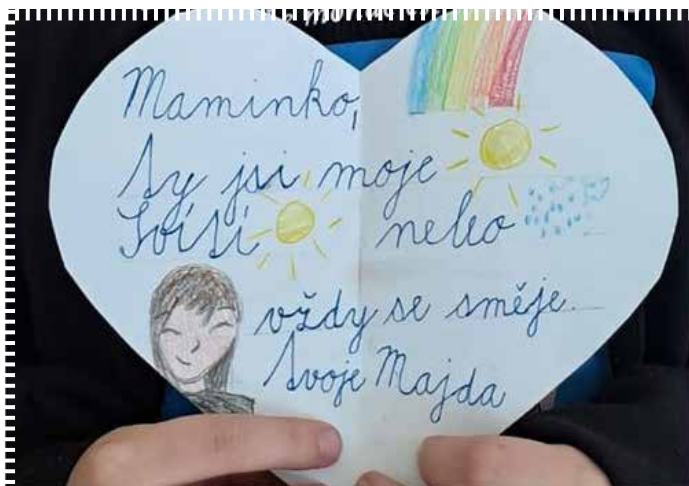 Maminko,
ty jsi moje
Svítí nebo
vždy se směje.
tvoje Majda